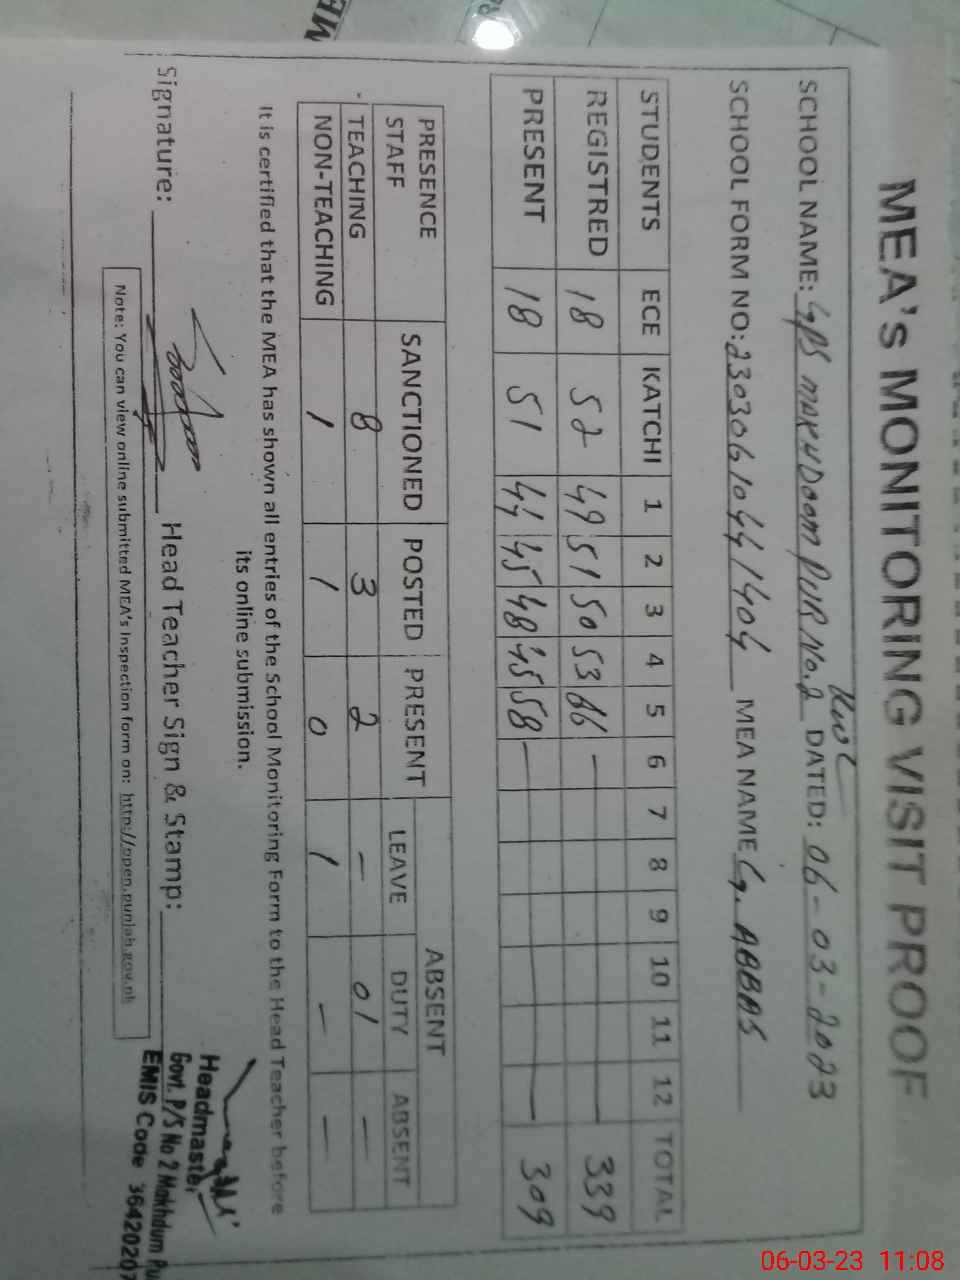 MEA's MONITORING VISIT PROOF
SCHOOL NAME: GPS MAKHDOOM PUR No.2 DATED: 06-03-2023
SCHOOL FORM NO: 23030610441404 MEA NAME G. ABBAS
STUDENTS ECE KATCHI 1 2 3 4 5 6 7 8 9 10 11 12 TOTAL
REGISTRED 18 52 49 51 50 53 66 339
PRESENT 18 51 44 45 48 45 58 309
PRESENCE STAFF SANCTIONED POSTED PRESENT ABSENT
LEAVE DUTY ABSENT
TEACHING 8 3 2 – 01 –
NON-TEACHING 1 1 0 1 – –
It is certified that the MEA has shown all entries of the School Monitoring Form to the Head Teacher before
its online submission.
Signature: Head Teacher Sign & Stamp:
Headmaster
Govt. P/S No 2 Makhdum Pu
EMIS Code 36420207
Note: You can view online submitted MEA's Inspection form on: http://open.punjab.gov.pk
06-03-23 11:08